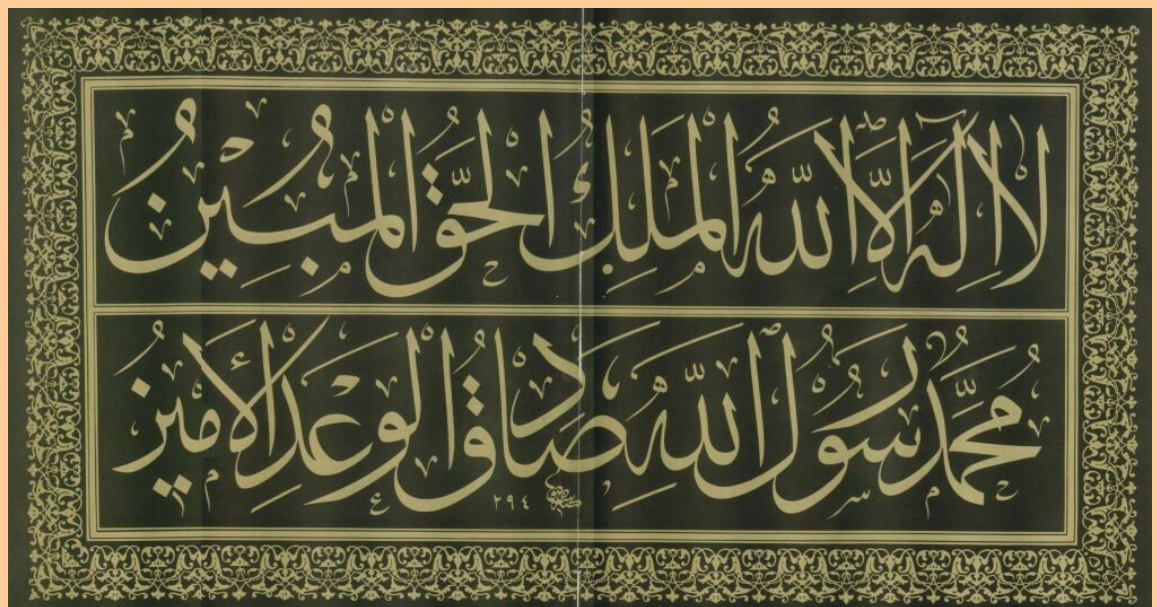 لَا اِلٰهَ اِلَّا اللّٰهُ الْمَلِكُ الْحَقُّ الْمُبِيْنُ
مُحَمَّدٌ رَسُوْلُ اللّٰهِ صَادِقُ الْوَعْدِ الْأَمِيْنُ
٢٩٤